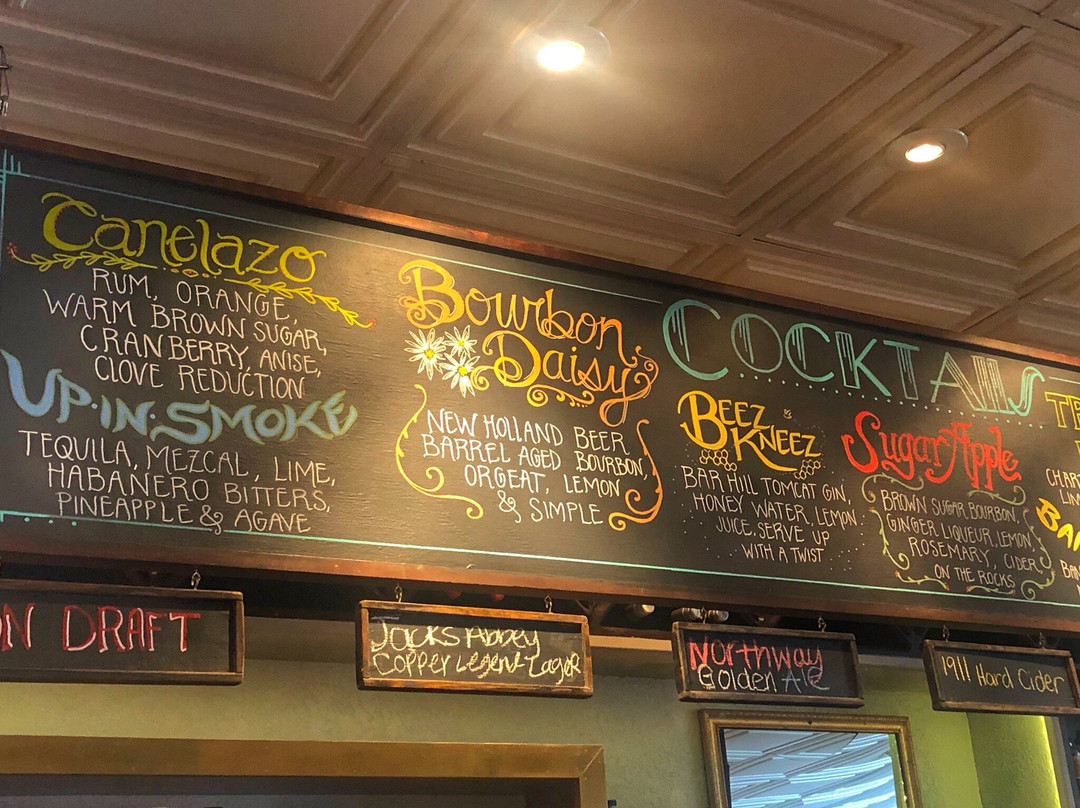 Canelazo
RUM, ORANGE,
WARM BROWN SUGAR,
CRANBERRY, ANISE,
CLOVE REDUCTION
UP·IN·SMOKE
TEQUILA, MEZCAL, LIME,
HABANERO BITTERS,
PINEAPPLE & AGAVE
Bourbon
Daisy
NEW HOLLAND BEER
BARREL AGED BOURBON,
ORGEAT, LEMON
& SIMPLE
COCKTAILS
BEEZ
KNEEZ
BAR HILL TOMCAT GIN,
HONEY WATER, LEMON
JUICE. SERVE UP
WITH A TWIST
Sugar Apple
BROWN SUGAR BOURBON,
GINGER LIQUEUR, LEMON
ROSEMARY, CIDER
ON THE ROCKS
DRAFT
Jacks Abbey
Copper Legend Lager
Northway
Golden Ale
1911 Hard Cider